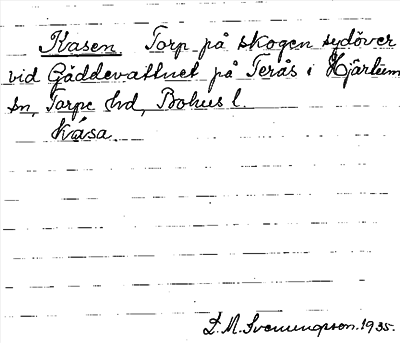 Kasen Torp på skogen sydöver
vid Gäddevattnet på Terås i Hjärtum
sn, Torpe hd, Bohus l.
Kåsa.
D. M. Svenungsson. 1935.